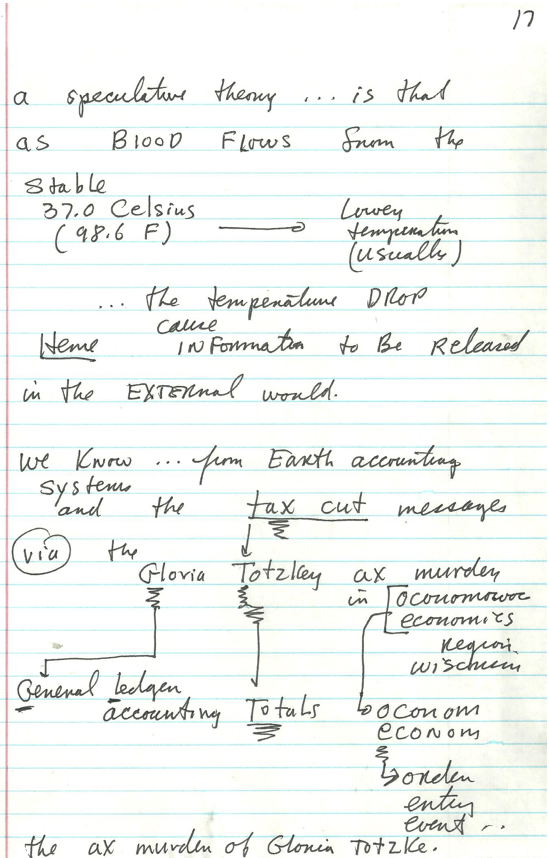 17
a speculative theory ... is that
as BlooD FLows from the
Stable
37.0 Celsius
(98.6 F)
Lower
temperature
(usually)
... the temperature DROP
cause
Heme INFormation to Be Released
in the EXTERnal would.
we Know ... from Earth accounting
systems
and the tax cut messages
via the
Gloria Totzkey ax murder
in oconomowoc
economics
region
wisconsin
General Ledger
accounting Totals
oconom
econom
order
entry
event ..
the ax murder of Gloria Totzke.